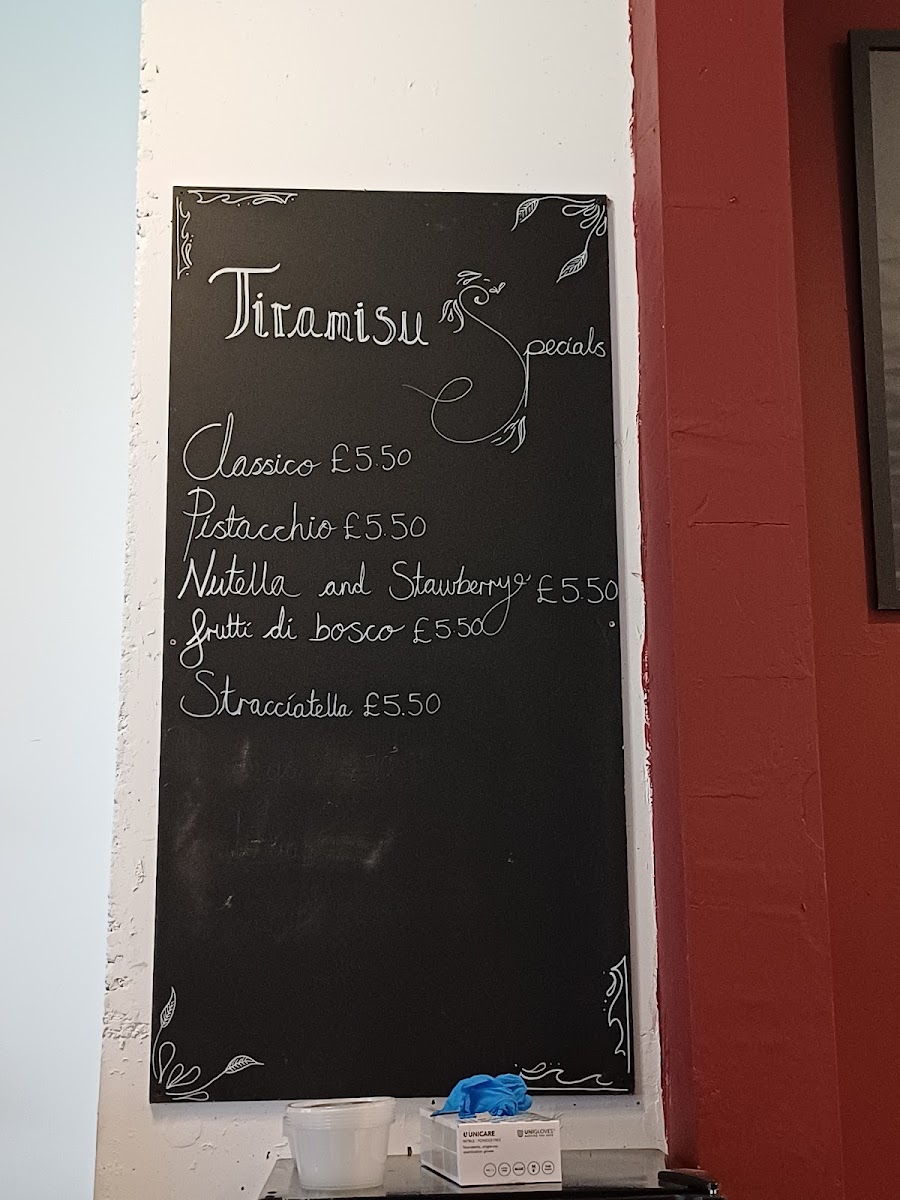 Tiramisu Specials
Classico £5.50
Pistacchio £5.50
Nutella and Stawberry £5.50
frutti di bosco £5.50
Stracciatella £5.50
UNICARE
UNIGLOVES